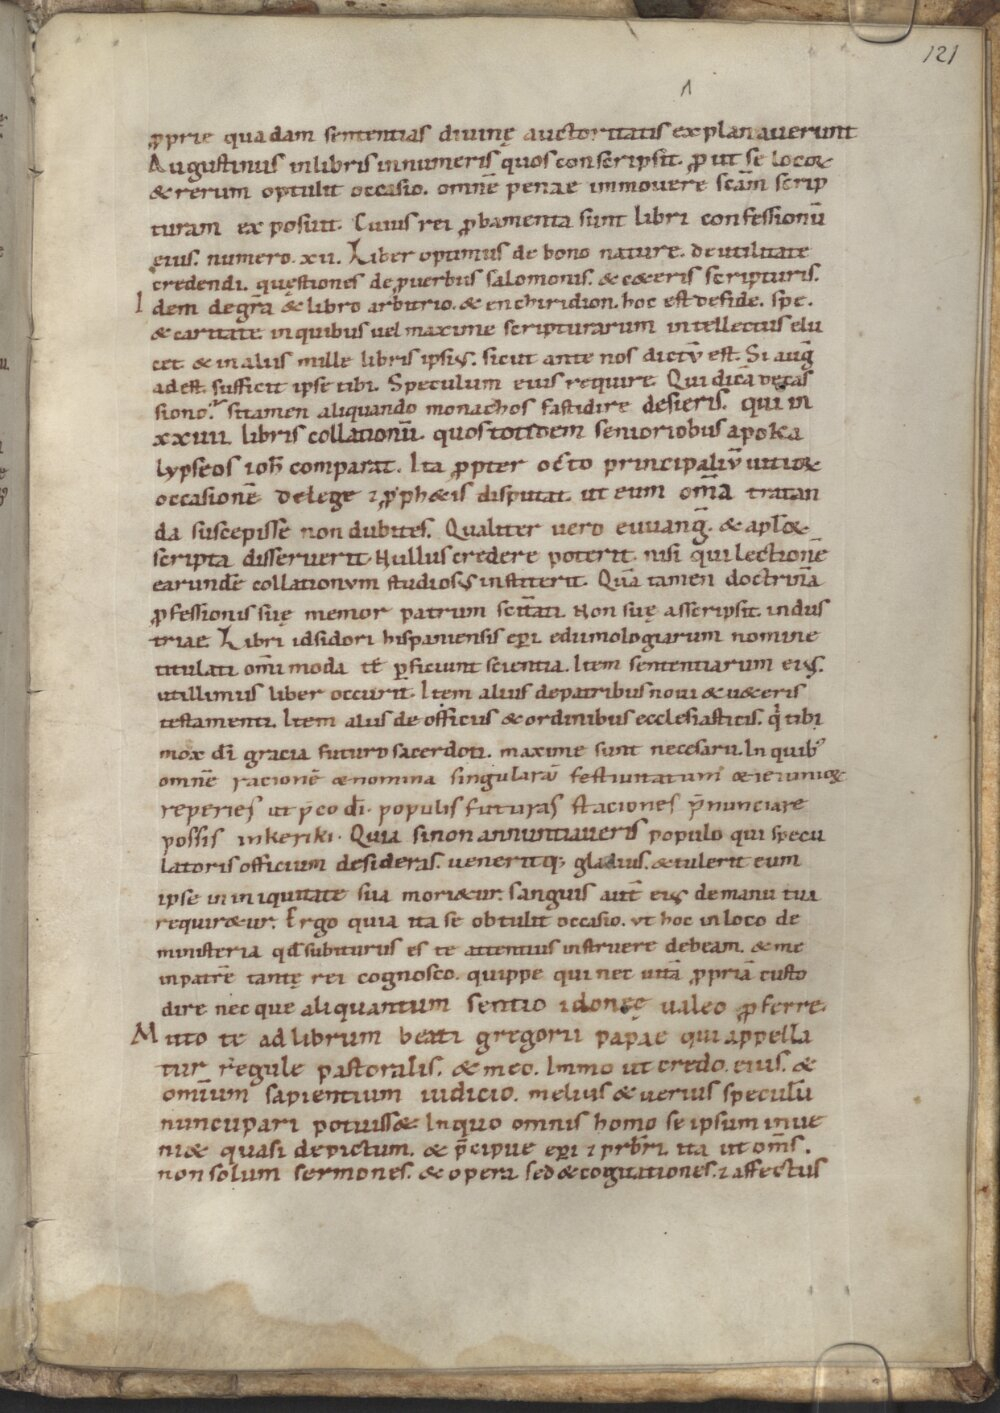 121
ꝓprie quadam sententias diuinę auctoritatis explanauerunt
Augustinus in libris innumeris quos conscripsit. ꝓ ut se loco&
& rerum optulit occasio. omnē penae immouere scām scrip
turam exposuit. Cuius rei ꝓbamenta sunt libri confessionū
eius. numero. xii. Liber optimus de bono nature. de utilitate
credendi. quęstiones de ꝓuerbiis salomonis. & c&eris scripturis.
Idem de gr̄a & libro arbitrio. & enchiridion. hoc est de fide. spe.
& caritate in quibus uel maxime scripturarum intellectus elu
cet & in aliis mille libris ipsiꝰ. sicut ante nos dictū est. Si auḡ
adest. sufficit ipse tibi. Speculum eius require Qui dicā de cas
siono. si tamen aliquando monachos fastidire desieris. qui in
xxiiii libris collationū. quos totidem senioriobus apoka
lypseos ioh̄ comparat. Ita ꝓpter octo principaliū uitio&
occasionē de lege ⁊ ꝓph&is disputat. ut eum om̄a tratan
da suscepisse non dubites. Qualiter uero euuanḡ. & apl̄o&
scripta disseruerit Nullus credere poterit nisi qui lectionē
earundē collationum studiosꝰ institerit. Quā tamen doctrinā
ꝓfessionis suę memor patrum sc̄itati. Non suę asscripsit indus
triae. Libri idsidori hispaniensis ep̄i edumologiarum nomine
titulati om̄i moda tē ꝑficiunt scientia. Item sententiarum eiꝰ.
utillimus liber occurit. Item alius de patribus noui & u&eris
testamenti. Item alius de officiis & ordinibus ecclesiasticis. q̇ tibi
mox dī gracia futuro sacerdoti. maxime sunt necesarii. In quibꝰ
omnē racionē & nomina singularū festiuitatum & ieiunio&
reperies ut p̄co dī. populis futuras staciones p̄nunciare
possis inkeriki. Quia si non annuntiaueris populo qui specu
latoris officium desideras. ueneritq; gladius. & tulerit eum
ipse in iniquitate sua mori&ur. sanguis aut̄ eiꝰ de manu tua
requir&ur. Ergo quia ita se obtulit occasio. ut hoc in loco de
ministeria qđ subiturus es te attentius instruere debeam. & me
inpatrē tantę rei cognosco. quippe qui nec uitā ꝓpriā custo
dire nec que aliquantum sentio idonee ualeo ꝓferre.
Mitto te ad librum beati gregorii papae qui appella
tur regule pastoralis. & meo. Immo ut credo. eius. &
omīum sapientium iudicio. melius & uerius speculū
nuncupari potuiss& In quo omnis homo se ipsum inue
ni& quasi depictum. & p̄cipue ep̄i ⁊ prb̄ri. ita ut om̄s.
non solum sermones. & opera sed & cogitationes. ⁊ affectus